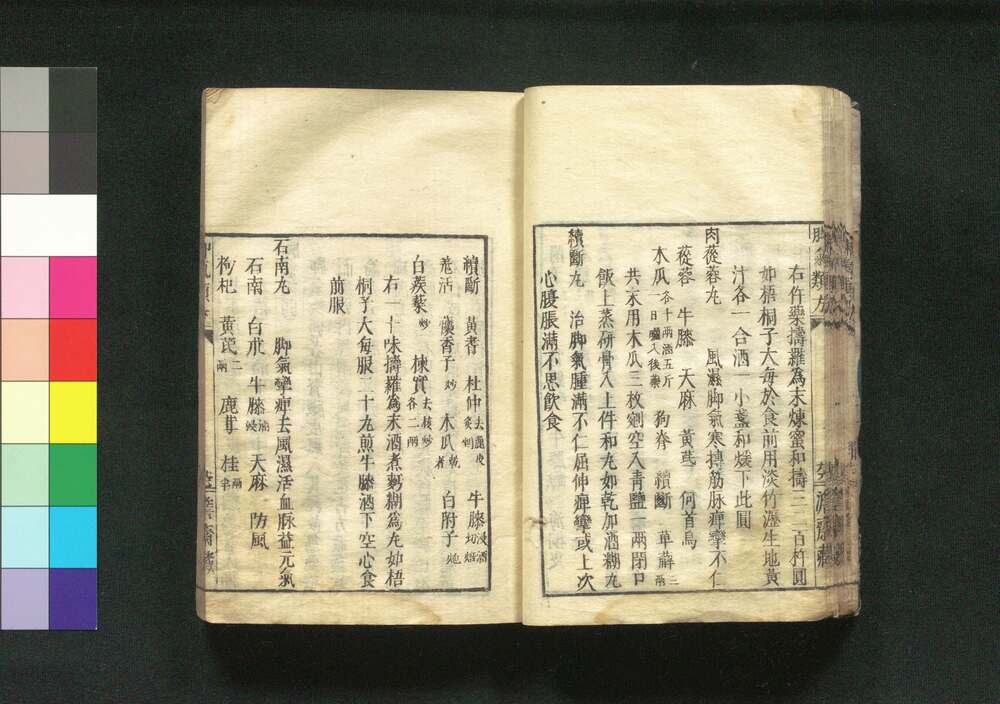 脚氣類方
右件藥擣羅為末煉蜜和擣三二百杵圓
如梧桐子大每於食前用淡竹瀝生地黃
汁各一合酒一小盞和煖下此圓
肉蓯蓉丸　風濕脚氣寒摶筋脉痹攣不仁
蓯蓉　牛膝　天麻　黃芪　何首烏
木瓜各十兩酒五斤日曬入後藥　狗脊　續斷　萆薢三兩
共末用木瓜三枚剜空入青鹽一兩閉口
飯上蒸研骨入上件和丸如乾加酒糊丸
續斷丸　治脚氣腫滿不仁屈伸痹攣或上次
心腹脹滿不思飲食
續斷　黃耆　杜仲去麁皮炙剉　牛膝浸酒切焙
羌活　茴香子炒　木瓜乾者　白附子炮
白蒺藜炒　楝實去核炒各二兩
右一十味擣羅為末酒煮麪糊為丸如梧
桐子大每服二十丸煎牛膝酒下空心食
前服
石南丸　脚氣攣痹去風濕活血脉益元氣
石南　白朮　牛膝酒浸　天麻　防風
枸杞　黃芪二兩　鹿茸　桂